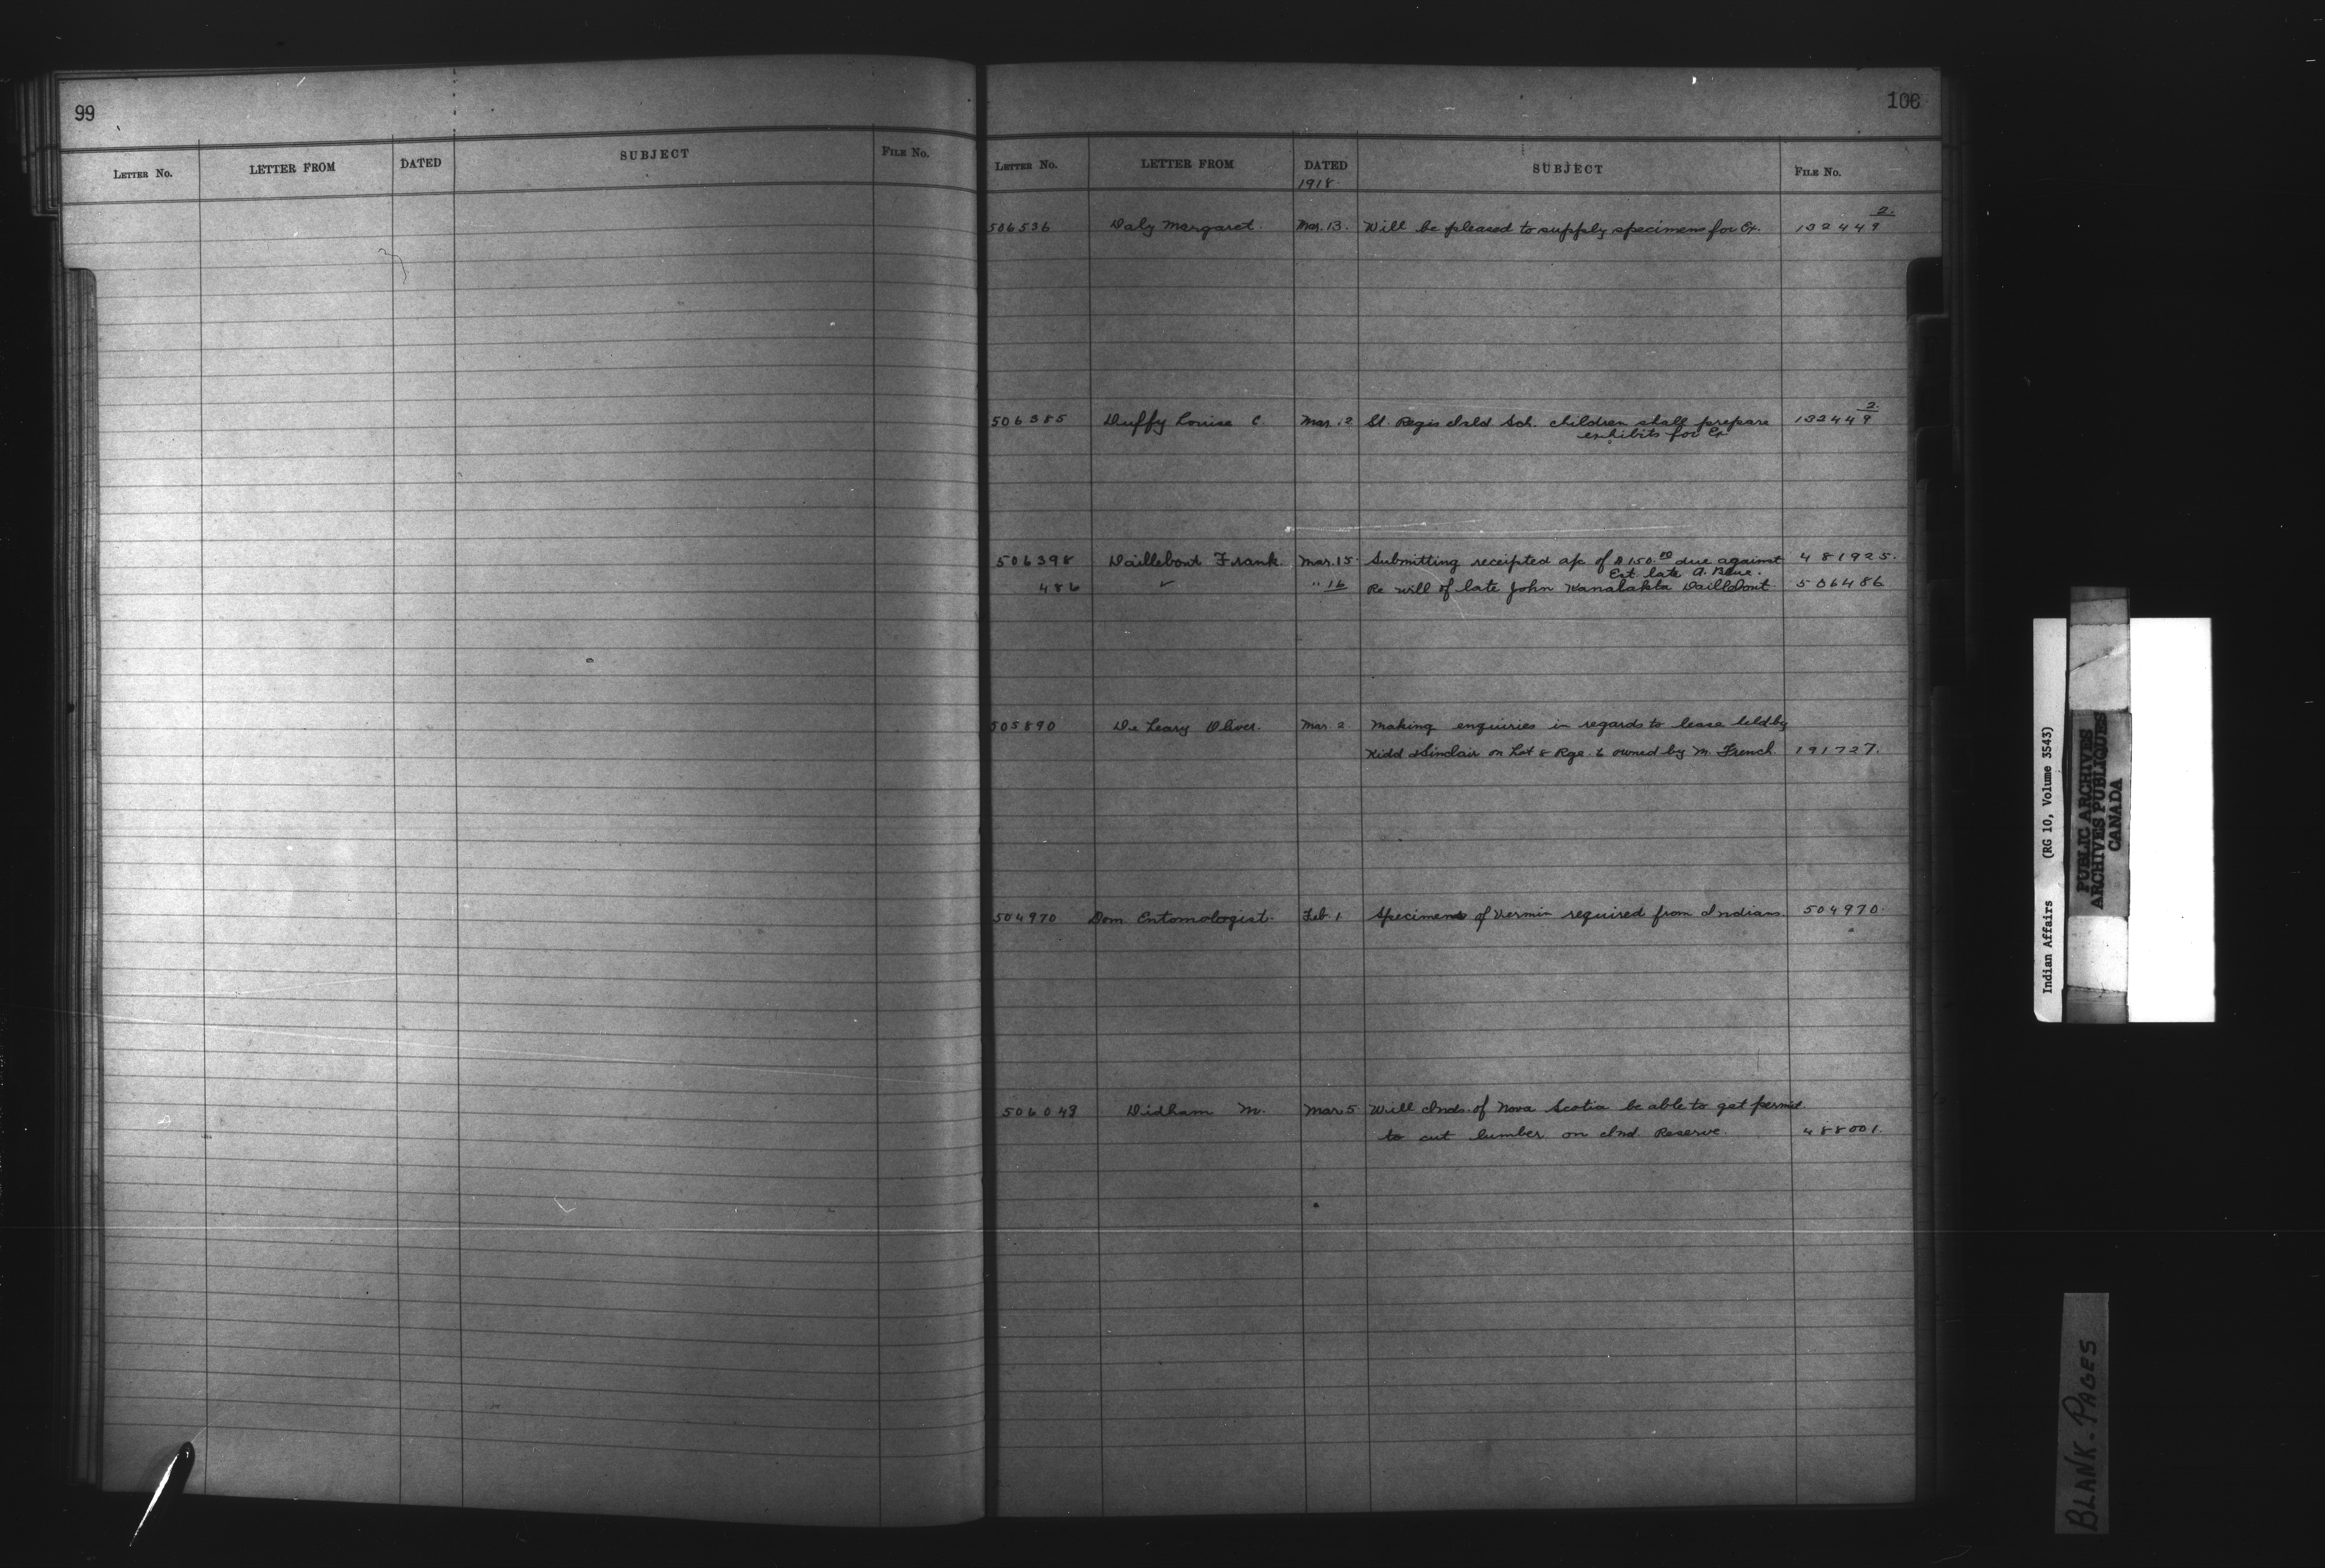 99
LETTER NO. LETTER FROM DATED SUBJECT FILE NO.
106
LETTER NO. LETTER FROM DATED SUBJECT FILE NO.
1918
506536 Daly Margaret. Mar. 13. Will be pleased to supply specimens for Ex. 132449
2.
506385 Duffy Louise C. Mar. 12 St. Regis Isld Sch. children shall prepare 132449
2.
exhibits for Ex
506398 Daillebout Frank. Mar. 15 Submitting receipted a/c of $150.00 due against 481925.
Est late A. Beauvais.
486 " " 16 Re will of late John Kanalakta Daillebout 506486
505890 De Leary Oliver. Mar. 2 Making enquiries in regards to lease held by
Kidd & Sinclair on Lot 8 Rge. 6 owned by M. French 191727.
504970 Dom. Entomologist. Feb. 1 Specimens of Vermin required from Indians. 504970.
506049 Didham M. Mar. 5 Will Inds. of Nova Scotia be able to get permit
to cut lumber on Ind. Reserve. 488001.
Indian Affairs (RG 10, Volume 3543)
PUBLIC ARCHIVES
ARCHIVES PUBLIQUES
CANADA
BLANK-PAGES